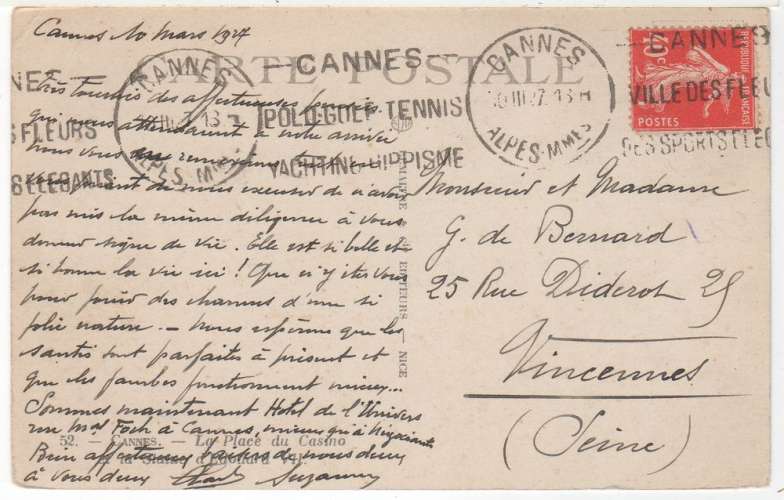 Cannes 10 mars 1927
CARTE POSTALE
CANNES
ALPES-MMES
13 H
CANNES
POLO-GOLF-TENNIS
YACHTING-HIPPISME
CANNES
10 III 27. 13 H
ALPES-MMES
CANNES
VILLE DES FLEU
DES SPORTS ELEG
RÉPUBLIQUE FRANÇAISE
POSTES
NES
S FLEURS
S ELEGANTS
Très touchés des affectueuses pensées
qui nous attendaient à notre arrivée
nous vous en remercions
vous priant de nous excuser de n'avoir
pas mis la même diligence à vous
donner signe de vie. Elle est si belle et
si bonne la vie ici ! Que n'y êtes vous
pour jouir des charmes d'une si
jolie nature. — Nous espérons que les
santés sont parfaites à présent et
que les jambes fonctionnent mieux...
Sommes maintenant Hotel de l'Univers
rue Mal Foch à Cannes, mieux qu'à
Bien affectueux baisers de nous deux
à vous deux Suzanne
52. — CANNES. — La Place du Casino
et la Statue d'Edouard VII.
EDITEURS — NICE
Monsieur et Madame
G. de Bernard
25 Rue Diderot 25
Vincennes
(Seine)